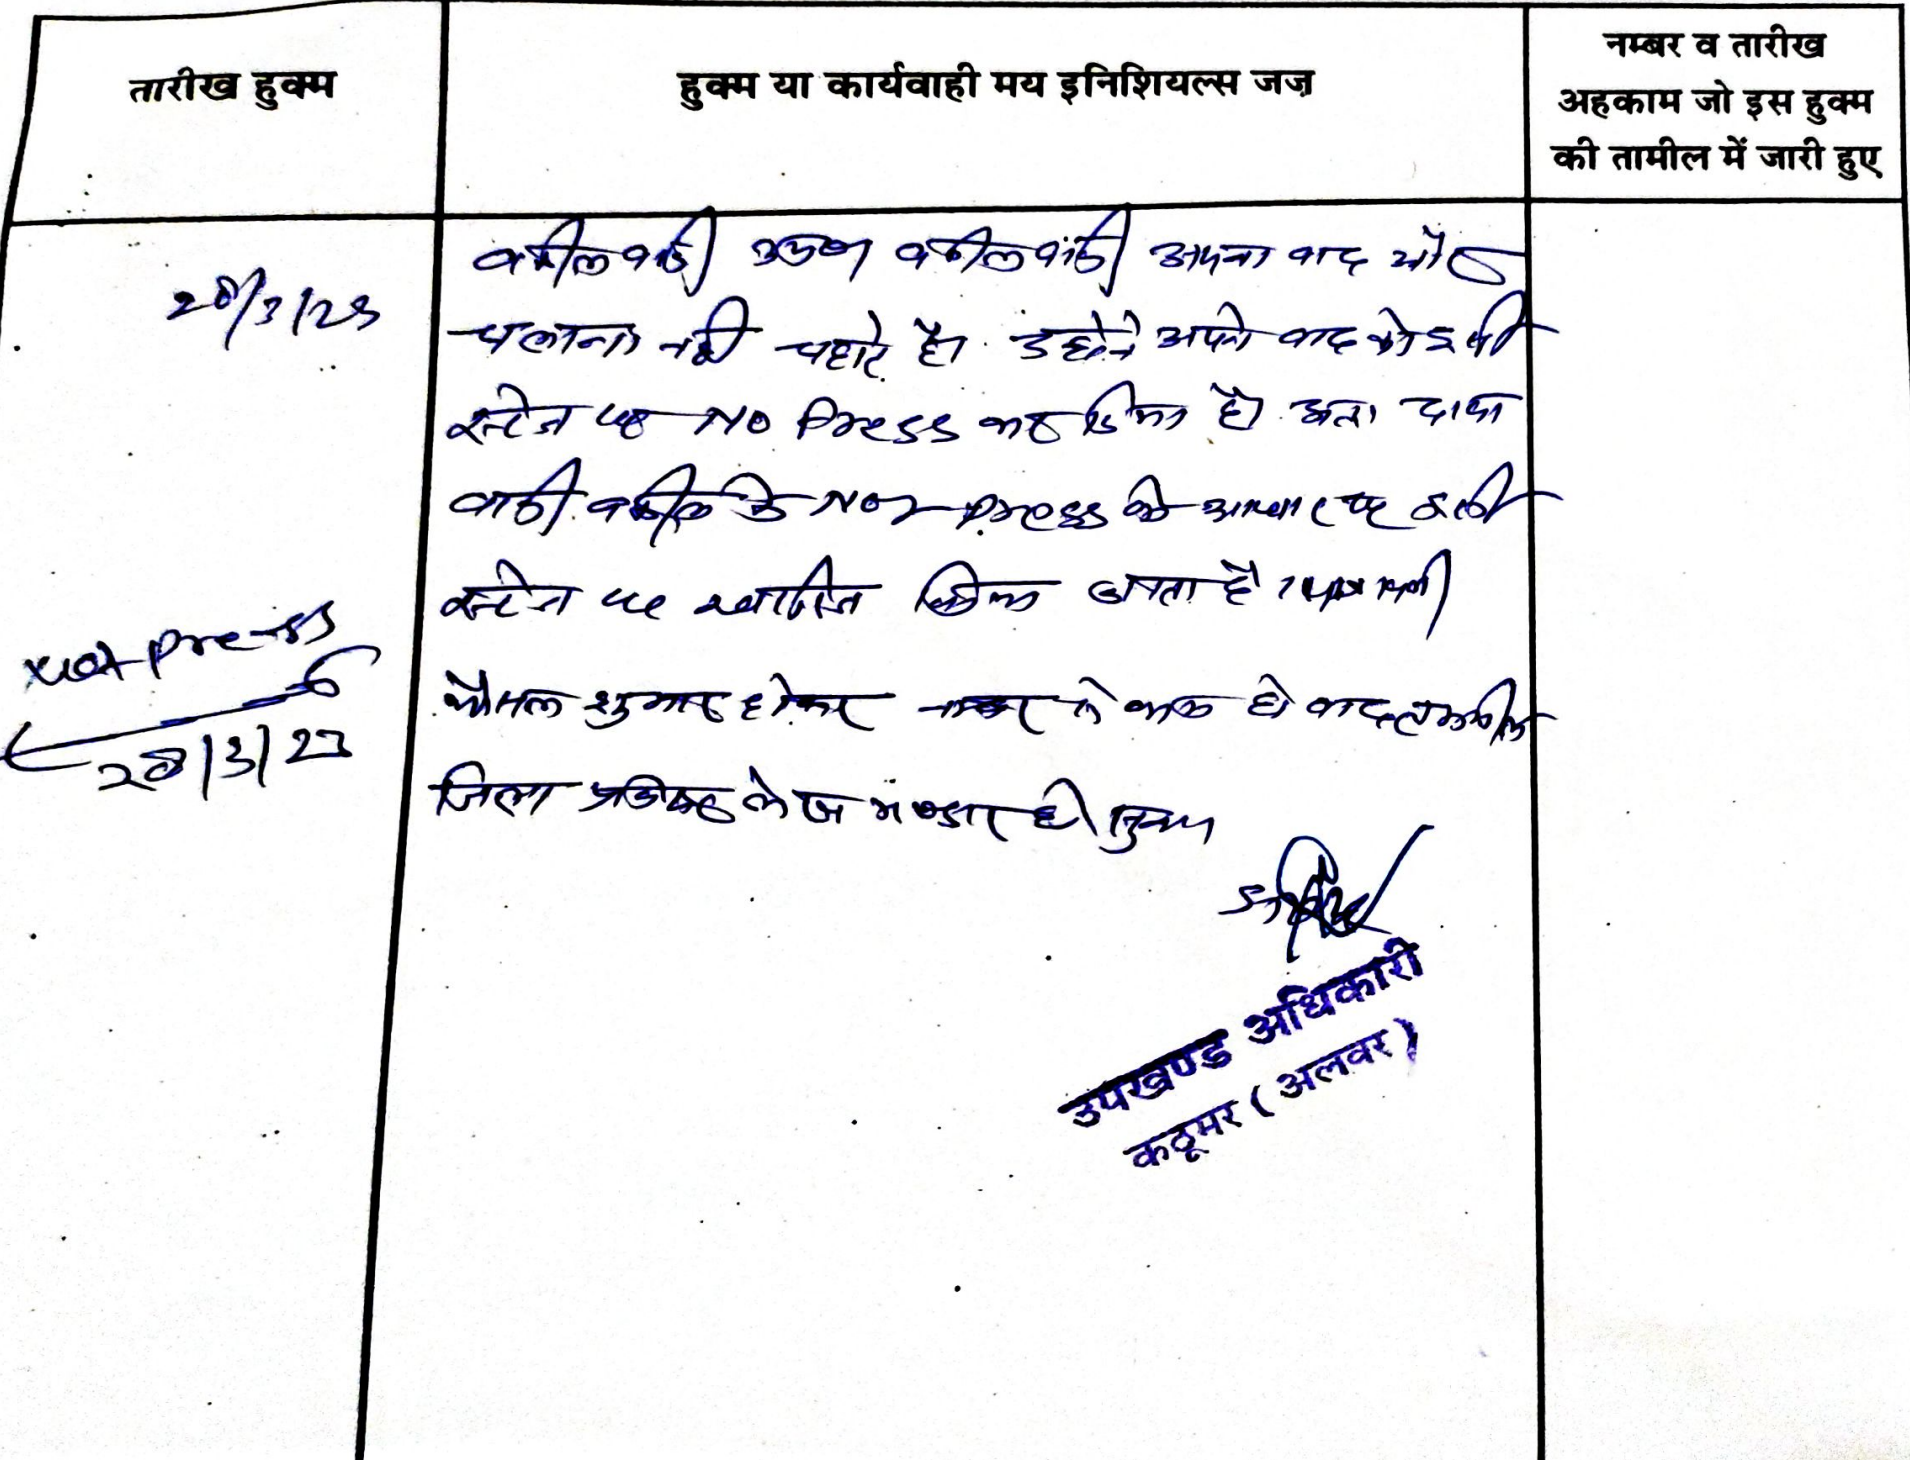 तारीख हुक्म
हुक्म या कार्यवाही मय इनिशियल्स जज़
नम्बर व तारीख
अहकाम जो इस हुक्म
की तामील में जारी हुए
28/3/23
वकील वादी उप० वकील वादी अपना वाद
चलाना नही चहाते है। उन्होने अपने वाद को इसी
स्टेज पर No Press कर दिया है। अतः दावा
वादी वकील के Not Press के आधार पर इसी
स्टेज पर खारिज किया जाता है।
फैसल शुमार होकर नम्बर से कम हो बाद तकमील
जिला अभिलेख
Not press
28/3/23
उपखण्ड अधिकारी
कठूमर (अलवर)